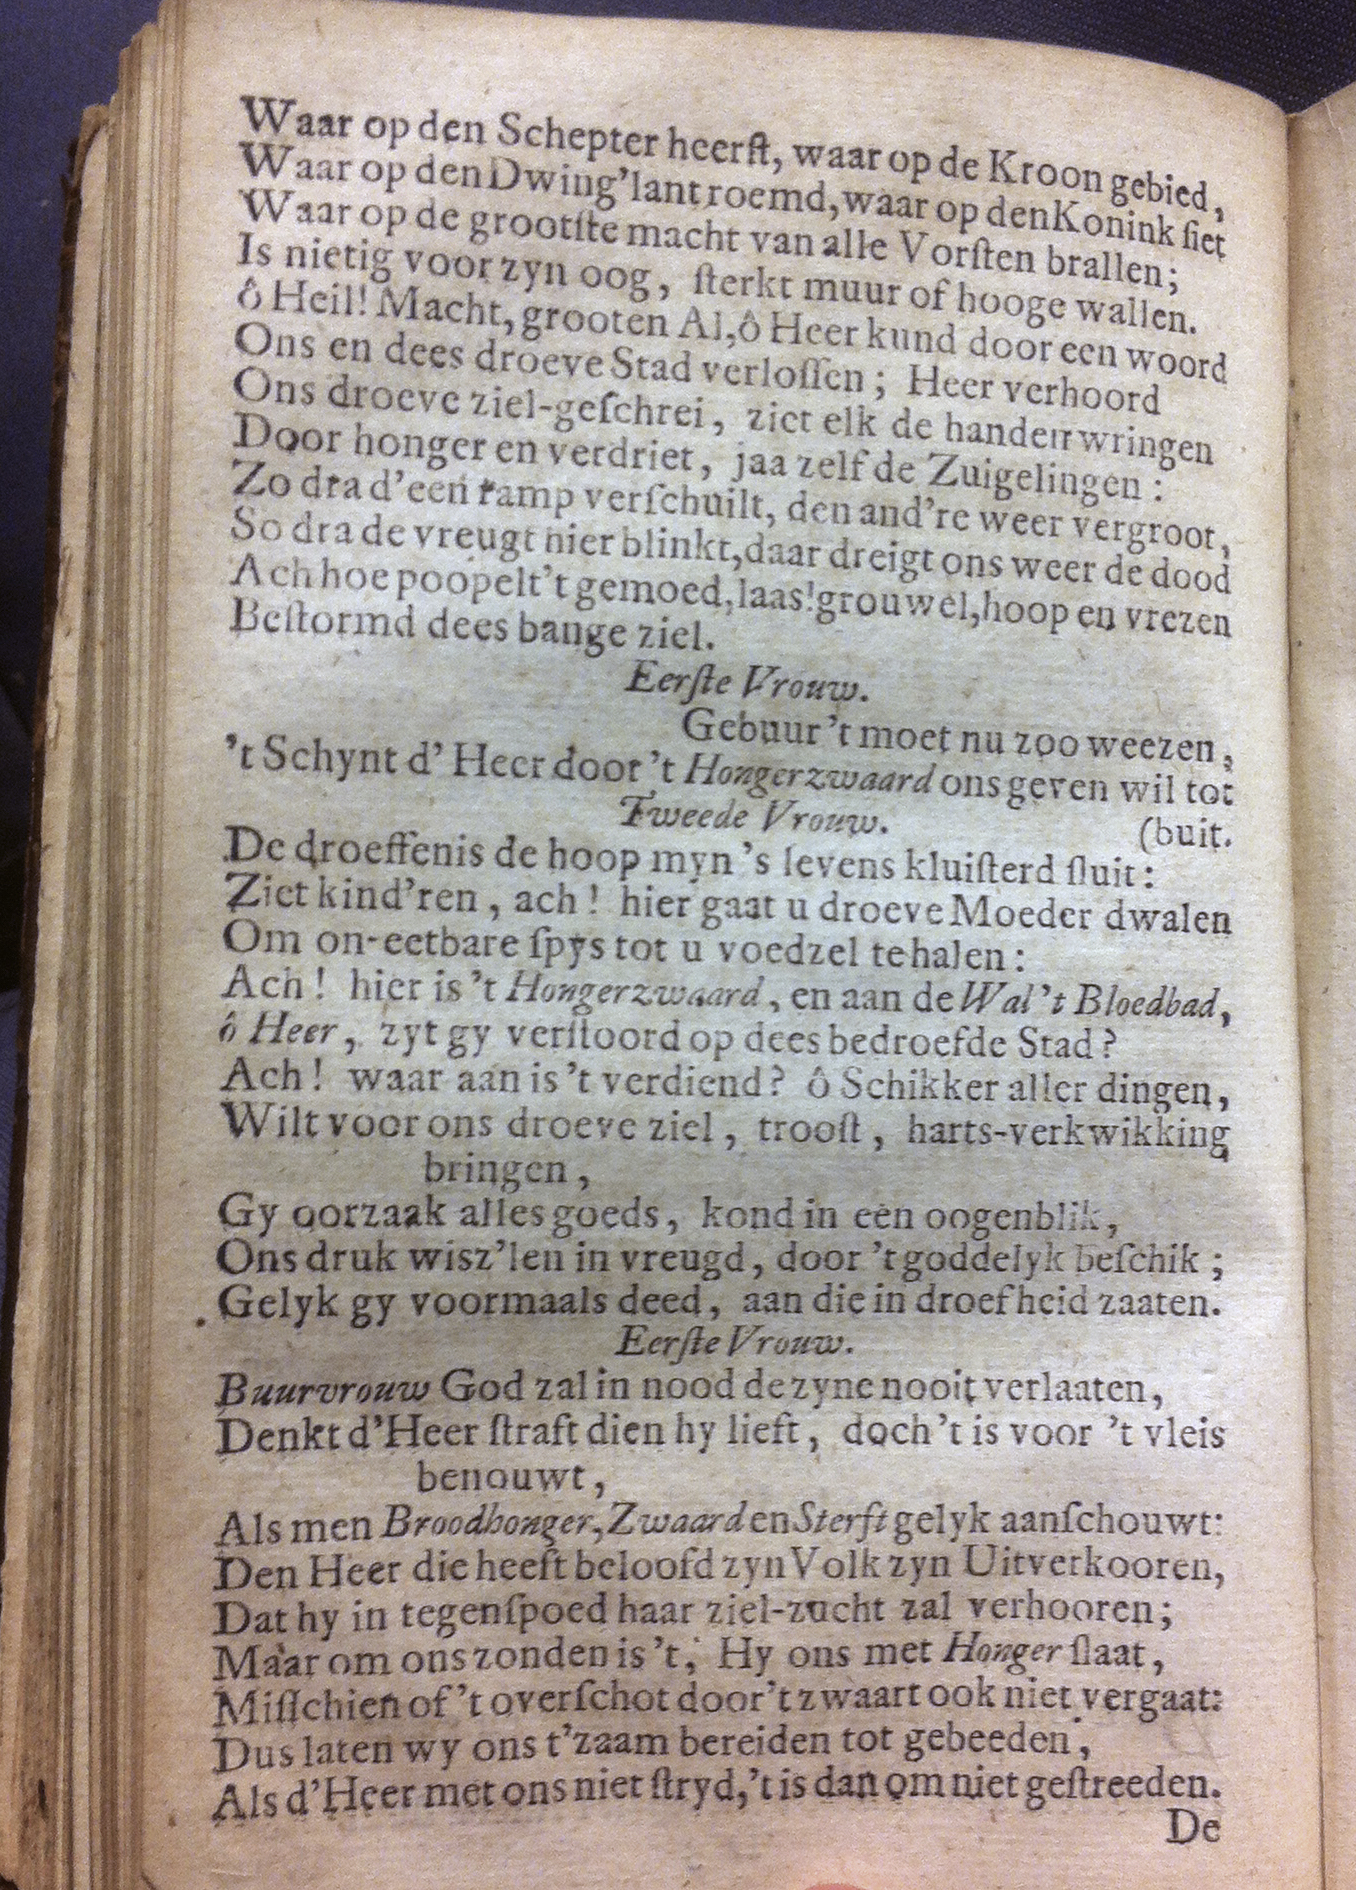 Waar op den Schepter heerſt, waar op de Kroon gebied,
Waar op den Dwing'lant roemd, waar op den Konink ſiet
Waar op de grootſte macht van alle Vorſten brallen;
Is nietig voor zyn oog, ſterkt muur of hooge wallen.
ô Heil! Macht, grooten Al, ô Heer kund door een woord
Ons en dees droeve Stad verloſſen; Heer verhoord
Ons droeve ziel-geſchrei, ziet elk de handen wringen
Door honger en verdriet, jaa zelf de Zuigelingen:
Zo dra d'een ramp verſchuilt, den and're weer vergroot,
So dra de vreugt hier blinkt, daar dreigt ons weer de dood
Ach hoe poopelt 't gemoed, laas! grouwel, hoop en vrezen
Beſtormd dees bange ziel.
Eerſte Vrouw.
Gebuur 't moet nu zoo weezen,
't Schynt d' Heer door 't Hongerzwaard ons geven wil tot
(buit.
Tweede Vrouw.
De droeffenis de hoop myn 's levens kluiſterd ſluit:
Ziet kind'ren, ach! hier gaat u droeve Moeder dwalen
Om on-eetbare ſpys tot u voedzel te halen:
Ach! hier is 't Hongerzwaard, en aan de Wal 't Bloedbad,
ô Heer, zyt gy verſtoord op dees bedroefde Stad?
Ach! waar aan is 't verdiend? ô Schikker aller dingen,
Wilt voor ons droeve ziel, trooſt, harts-verkwikking
bringen,
Gy oorzaak alles goeds, kond in een oogenblik,
Ons druk wisz'len in vreugd, door 't goddelyk beſchik;
Gelyk gy voormaals deed, aan die in droefheid zaaten.
Eerſte Vrouw.
Buurvrouw God zal in nood de zyne nooit verlaaten,
Denkt d'Heer ſtraft dien hy lieft, doch 't is voor 't vleis
benouwt,
Als men Broodhonger, Zwaard en Sterft gelyk aanſchouwt:
Den Heer die heeft beloofd zyn Volk zyn Uitverkooren,
Dat hy in tegenſpoed haar ziel-zucht zal verhooren;
Maar om ons zonden is 't, Hy ons met Honger ſlaat,
Miſſchien of 't overſchot door 't zwaart ook niet vergaat:
Dus laten wy ons t'zaam bereiden tot gebeeden,
Als d'Heer met ons niet ſtryd, 't is dan om niet geſtreeden.
De